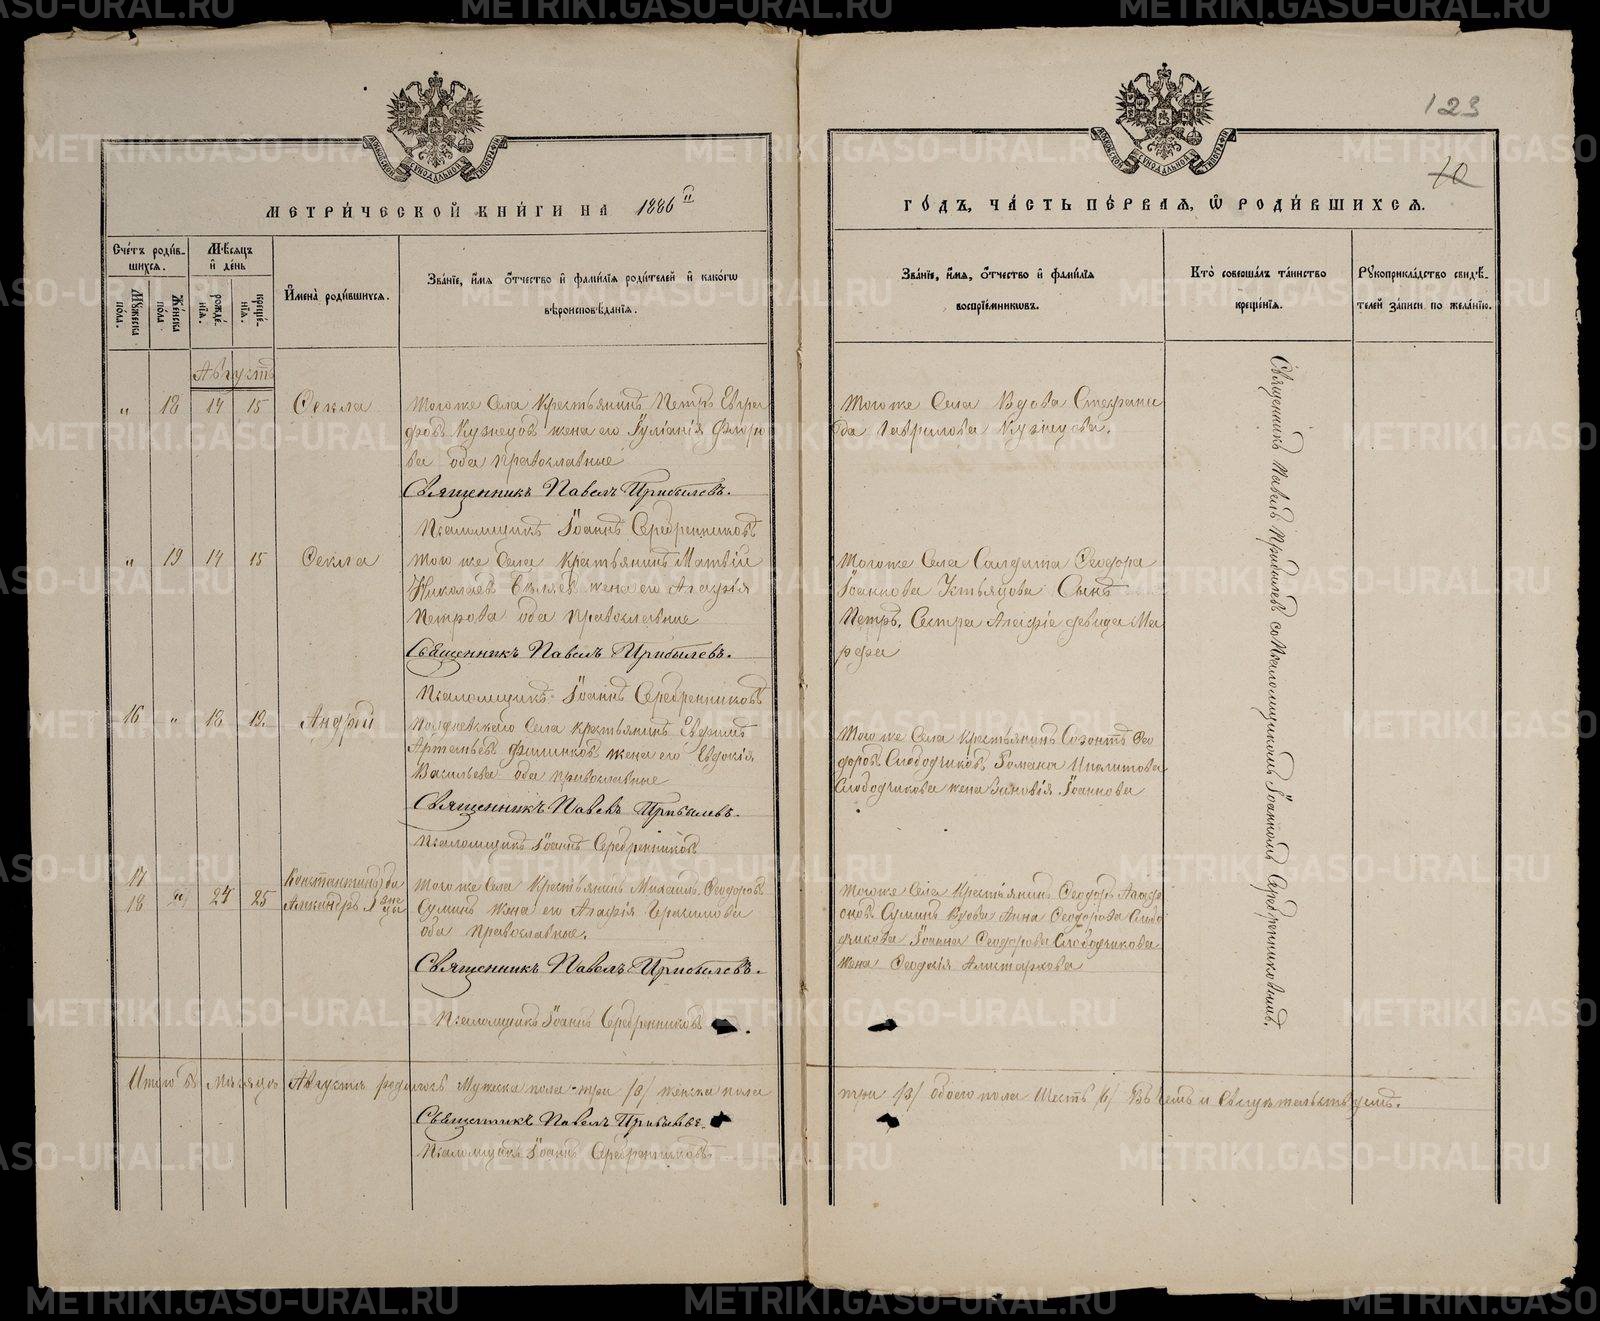 METRIKI.GASO-URAL.RU
123
10
МЕТРИ́ЧЕСКОЙ КНИ́ГИ НА 1886й
ГО́ДЪ, ЧА́СТЬ ПЕ́РВАѦ, Ѡ РОДИ́ВШИХСѦ.
Сче́тъ роди́в-
шихсѧ.
Му́жеска по́ла.
Же́нска по́ла.
Мѣ́сѧцъ
и де́нь
рожде́-
нїѧ.
креще́-
нїѧ.
Имена̀ роди́вшихсѧ.
Зва́нїе, и́мѧ о́тчество и фами́лїѧ роди́телей и како́гѡ
вѣроисповѣ́данїѧ.
Зва́нїе, и́мѧ, о́тчество и фами́лїѧ
воспрїе́мникѡвъ.
Кто̀ соверша́лъ та́инство
креще́нїѧ.
Рукоприкла́дство свидѣ́-
телей за́писи по жела́нїю.
Августъ
" 18 14 15 Секла
Того же Села Крестьянинъ Петръ Евгра
фовъ Кузнецовъ жена его Іуліанія Флоро
ва оба православные
Священникъ Павелъ Прибылевъ.
Псаломщикъ Іоаннъ Серебренниковъ
Того же Села Вдова Стефани
да Гаврилова Кузнецова.
" 19 14 15 Секла
Того же Села Крестьянинъ Матвій
Николаевъ Бѣляевъ жена его Агафія
Петрова оба православные
Священникъ Павелъ Прибылевъ.
Псаломщикъ Іоаннъ Серебренниковъ
Того же Села Солдата Ѳеодора
Іоаннова Устьянцова Сынъ
Петръ. Сестра Агафіе девица Ма
рфа
16 " 18 19. Андрей
Полдневскаго Села крестьянинъ Евфимъ
Артемьевъ жена его Евдокія
Васильева оба православные
Священникъ Павелъ Прибылевъ.
Псаломщикъ Іоаннъ Серебренниковъ
Того же Села Крестьянинъ Созонтъ Ѳео
доровъ Слободчиковъ Романа Иполитова
Слободчикова жена Зиновія Іоаннова
17
18 24 25 Константинъ да
Александръ близнецы
Того же Села Крестьянинъ Михаилъ Ѳеодоровъ
Суминъ жена его Агафія Герасимова
оба православные.
Священникъ Павелъ Прибылевъ.
Псаломщикъ Іоаннъ Серебренниковъ.
Того же Села Крестьянинъ Ѳеодоръ Агаф
оновъ Суминъ Вдова Анна Ѳеодорова Слобо
дчикова Іоанна Ѳеодорова Слободчикова
жена Ѳеодосія Алистархова
Священникъ Павелъ Прибылевъ со Псаломщикомъ Іоанномъ Серебренниковымъ.
Итого въ Мѣсяцѣ Августѣ родилось Мужеска пола три /3/ женска пола
три /3/ обоего пола Шесть /6/ Въ чемъ и свидѣтельствуемъ.
Священникъ Павелъ Прибылевъ.
Псаломщикъ Іоаннъ Серебренниковъ.